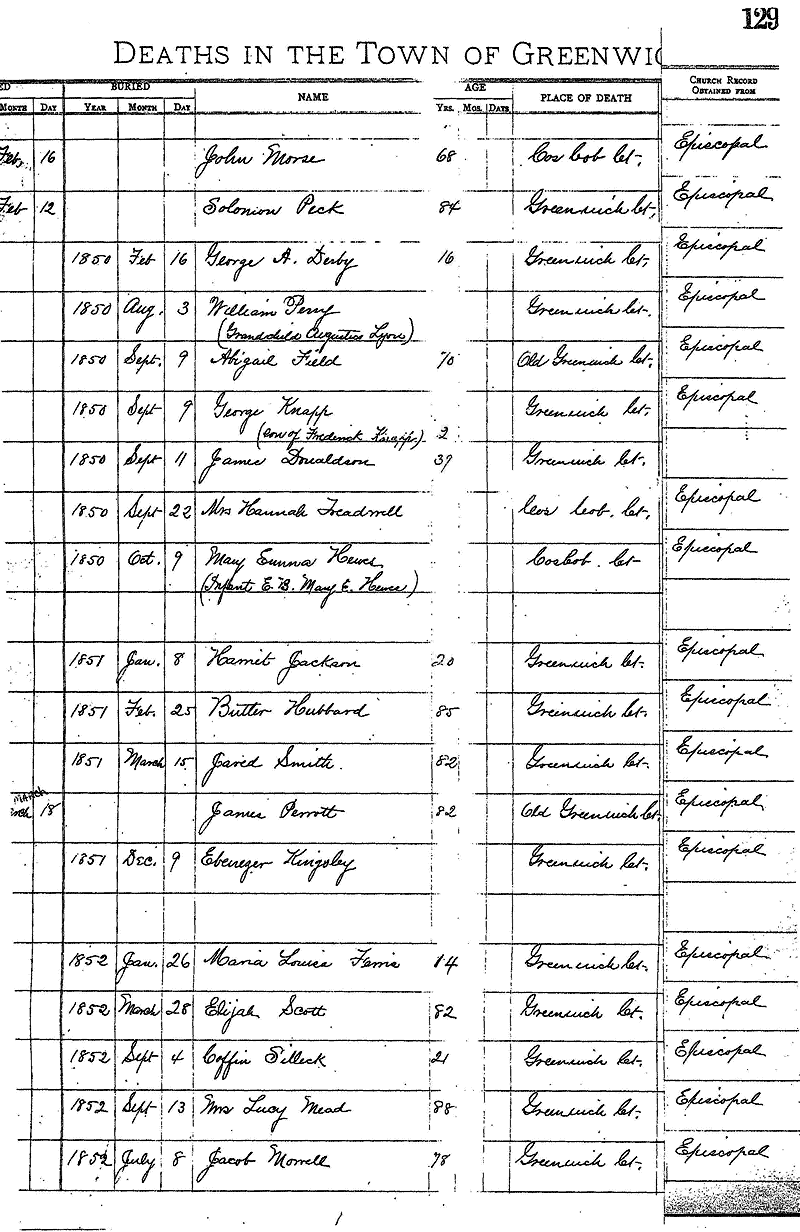 129
DEATHS IN THE TOWN OF GREENWIC
ED BURIED NAME AGE PLACE OF DEATH CHURCH RECORD OBTAINED FROM
MONTH DAY YEAR MONTH DAY YRS. MOS. DAYS
Feb. 16 John Morse 68 Cos Cob Ct. Episcopal
Feb 12 Solomon Peck 84 Greenwich Ct. Episcopal
1850 Feb 16 George A. Derby 16 Greenwich Ct. Episcopal
1850 Aug. 3 William Perry Greenwich Ct. Episcopal
(Grandchild Augustus Lyon)
1850 Sept. 9 Abigail Field 70 Old Greenwich Ct. Episcopal
1850 Sept 9 George Knapp Greenwich Ct. Episcopal
(son of Frederick Knapp) 2
1850 Sept 11 James Donaldson 39 Greenwich Ct.
1850 Sept 22 Mrs Hannah Treadwell Cos Cob. Ct. Episcopal
1850 Oct. 9 Mary Emma Hewes Cos Cob. Ct Episcopal
(Infant E. B. Mary E. Hewes)
1851 Jan. 8 Harriet Jackson 20 Greenwich Ct. Episcopal
1851 Feb. 25 Butler Hubbard 85 Greenwich Ct. Episcopal
1851 March 15 Jared Smith. 82 Greenwich Ct. Episcopal
MARCH
18 James Perrott 82 Old Greenwich Ct. Episcopal
1851 Dec. 9 Ebenezer Kingsley Greenwich Ct. Episcopal
1852 Jan. 26 Maria Louisa Ferris 14 Greenwich Ct. Episcopal
1852 March 28 Elijah Scott 82 Greenwich Ct. Episcopal
1852 Sept 4 Coffin Silleck 21 Greenwich Ct. Episcopal
1852 Sept 13 Mrs Lucy Mead 88 Greenwich Ct. Episcopal
1852 July 8 Jacob Morrell 78 Greenwich Ct. Episcopal